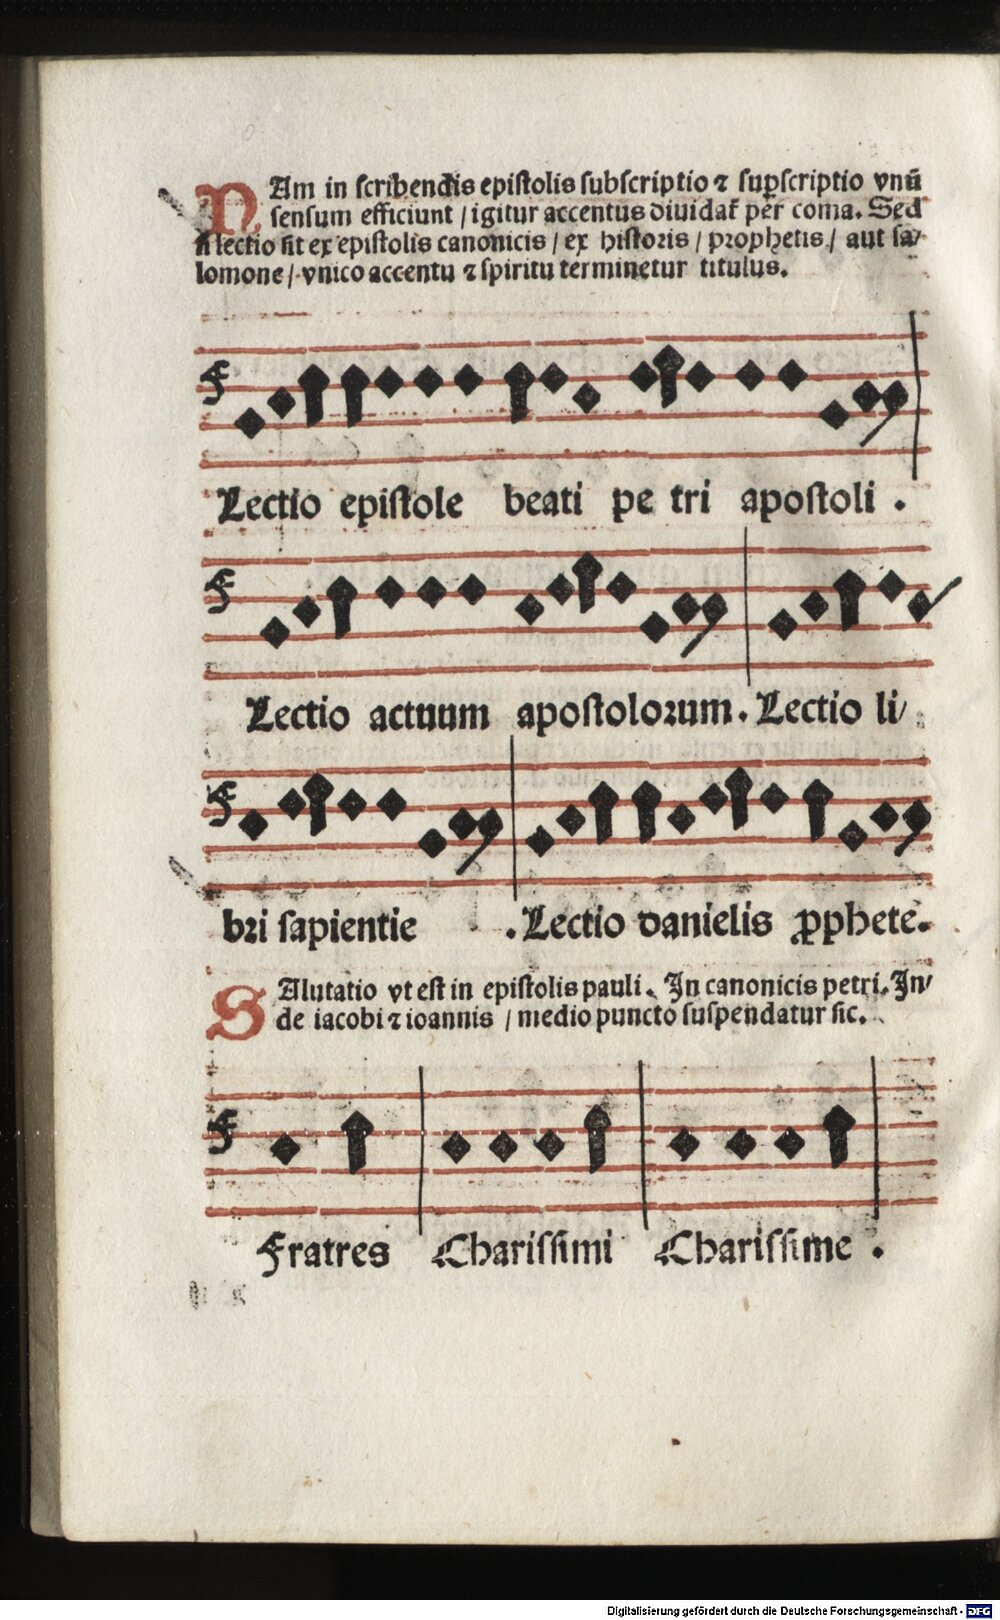 NAm in scribendis epistolis subscriptio ⁊ suꝑscriptio vnū
sensum efficiunt / igitur accentus diuidat᷑ per coma. Sed
si lectio sit ex epistolis canonicis / ex historis / prophetis / aut sa/
lomone / vnico accentu ⁊ spiritu terminetur titulus.
Lectio epistole beati pe tri apostoli .
Lectio actuum apostoloꝛum. Lectio li/
bꝛi sapientie . Lectio danielis ꝓphete.
SAlutatio vt est in epistolis pauli. In canonicis petri. In/
de iacobi ⁊ ioannis / medio puncto suspendatur sic.
Fratres Charissimi Charissime .
Digitalisierung gefördert durch die Deutsche Forschungsgemeinschaft - DFG